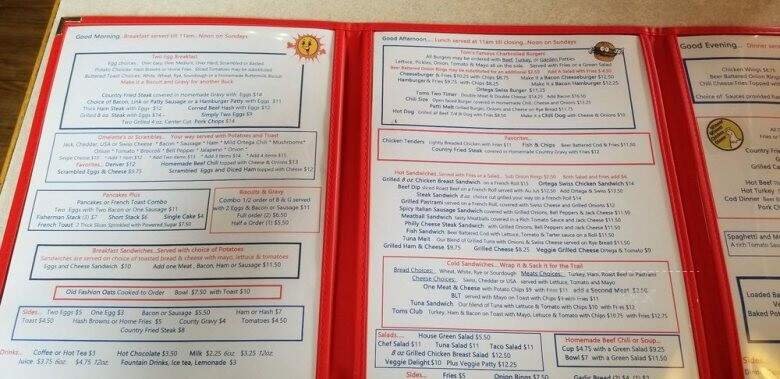 Good Morning..Breakfast served till 11am..Noon on Sundays
Two Egg Breakfast
Egg choices.. Over Easy, Over Medium, Over Hard, Scrambled or Basted
Potato Choices: Hash Browns or Home Fries. Sliced Tomatoes may be substituted
Buttered Toast Choices: White, Wheat, Rye, Sourdough or a Homemade Buttermilk Biscuit
Make it a Biscuit and Gravy for another Buck
Country Fried Steak covered in Homemade Gravy with Eggs $14
Choice of Bacon, Link or Patty Sausage or a Hamburger Patty with Eggs $11
Thick Ham Steak with Eggs $12 Corned Beef Hash with Eggs $12
Grilled 8 oz. Steak with Eggs $14 Simply Two Eggs $9
Two Grilled 4 oz. Center Cut Pork Chops $14
Omelette's or Scrambles.. Your way served with Potatoes and Toast
Jack, Cheddar, USA or Swiss Cheese * Bacon * Sausage * Ham * Mild Ortega Chili * Mushrooms*
Onion * Tomato * Broccoli * Bell Pepper * Jalapeno * Onion *
Single Cheese $11 *Add 1 item $12 *Add Two items $13 *Add 3 items $14 *Add 4 items $15
Favorites.. Denver $12 Homemade Beef Chili topped with Cheese & Onions $13
Scrambled Eggs & Cheese $9.75 Scrambled Eggs and Diced Ham topped with Cheese $12
Pancakes Plus
Pancakes or French Toast Combo
Two Eggs with Two Bacon or One Sausage $11
Fisherman Stack (3) $7 Short Stack $6 Single Cake $4
French Toast 2 Thick Slices Sprinkled with Powered Sugar $7.50
Biscuits & Gravy
Combo 1/2 order of B & G served
with 2 Eggs & Bacon or Sausage $11
Full order (2) $6.50
Half a Order (1) $5.50
Breakfast Sandwiches..Served with choice of Potatoes
Sandwiches are served on choice of toasted bread & cheese with mayo, lettuce & tomatoes
Eggs and Cheese Sandwich $10 Add one Meat , Bacon, Ham or Sausage $11.50
Old Fashion Oats Cooked to Order Bowl $7.50 with Toast $10
Sides... Two Eggs $5 One Egg $3 Bacon or Sausage $5.50 Ham or Hash $7
Toast $4.50 Hash Browns or Home Fries $5 County Gravy $4 Tomatoes $4.50
Country Fried Steak $8
Drinks.. Coffee or Hot Tea $3 Hot Chocolate $3.50 Milk $2.25 6oz $3.25 12oz
Juice $3.75 6oz $4.75 12oz Fountain Drinks, Ice tea, Lemonade $3
Good Afternoon... Lunch served at 11am till closing..Noon on Sundays
Tom's Famous Charbroiled Burgers
All Burgers may be ordered with Beef, Turkey, or Garden Patties
Lettuce, Pickles, Onion, Tomato & Mayo all on the side. Served with Fries or a Green Salad
Beer Battered Onion Rings may be substituted for an additional $2.50 Add A Salad with Fries $4.50
Cheeseburger & Fries $10.25 with Chips $8.75 Make it a Bacon Cheeseburger $12.50
Hamburger & Fries $9.75 with Chips $8.25 Make it a Bacon Hamburger $12.25
Ortega Swiss Burger $11.25
Toms Two Timer Double Meat & Double Cheese $14.25 Add Bacon $16.50
Chili Size Open faced Burger covered in Homemade Chili, Cheese and Onions $13.25
Patti Melt Grilled Burger, Onions and Cheese on Rye Bread $11.75
Hot Dog Grilled all Beef 1/4 lb Dog with Fries $8.50 Make it a Chili Dog with Cheese & Onions $10
Favorites..
Chicken Tenders Lightly Breaded Chicken with Fries $11 Fish & Chips Beer Battered Cod & Fries $11.50
Country Fried Steak covered in Homemade Country Gravy with Fries $12
Hot Sandwiches..Served with Fries or a Salad.. Sub Onion Rings $2.50 Both Salad and Fries add $4
Grilled 8 oz Chicken Breast Sandwich on a French Roll $15 Ortega Swiss Chicken Sandwich $14
Beef Dip sliced Roast Beef on a French Roll served with Au Jus $12.50 Add Ortega & Swiss $13.50
Steak Sandwich 8 oz. choice cut grilled your way on a French Roll $14
Grilled Pastrami served on a French Roll, covered with Swiss Cheese and Grilled Onions $12
Spicy Italian Sausage Sandwich covered with Grilled Onions, Bell Peppers & Jack Cheese $11.50
Meatball Sandwich Tasty Meatballs covered in a Rich Tomato Sauce and Jack Cheese $11.50
Philly Cheese Steak Sandwich with Grilled Onions, Bell Peppers and Jack Cheese $11.50
Fish Sandwich Beer Battered Cod with Lettuce, Tomato & Tarter sauce on a Roll $11.50
Tuna Melt Our Blend of Grilled Tuna with Onions & Swiss Cheese served on Rye Bread $11.50
Grilled Ham & Cheese $9.75 Grilled Cheese $8.25 Veggie Grilled Cheese Ortega & Tomato $9
Cold Sandwiches... Wrap it & Sack it for the Trail
Bread Choices: Wheat, White, Rye or Sourdough Meats Choices: Turkey, Ham, Roast Beef or Pastrami
Cheese Choices: Swiss, Cheddar or USA served with Lettuce, Tomato and Mayo
One Meat & Cheese with Potato Chips $9 with Fries $11 add a Second Meat $2.50
BLT served with Mayo on Toast with Chips $9 with Fries $11
Tuna Sandwich Our blend of Tuna with Lettuce & Tomato with Chips $10 with Fries $12
Toms Club Turkey, Ham & Bacon on Toast with Mayo, Lettuce & Tomato with Chips $10.75 with Fries $12.75
Salads... House Green Salad $5.50
Chef Salad $11 Tuna Salad $11 Taco Salad $11
8 oz Grilled Chicken Breast Salad $12.50
Veggie Delight $10 Plus Veggie Patty $12.25
Homemade Beef Chili or Soup...
Cup $4.75 with a Green Salad $9.25
Bowl $7 with a Green Salad $11.50
Sides.. Fries $5 Onion Rings $7.50 Garlic Bread (2) $4
Good Evening.. Dinner
Chicken Wings $8.75
Beer Battered Onion Rings
Chili Cheese Fries Topped with
Choice of Sauces provided
Fries or
Country Fri
Grilled Ca
Hot Beef
Hot Turkey
Cod Dinner Beer
Pork Ch
Spaghetti and M
A rich Tomato
Veg
Baked Pot
Sides